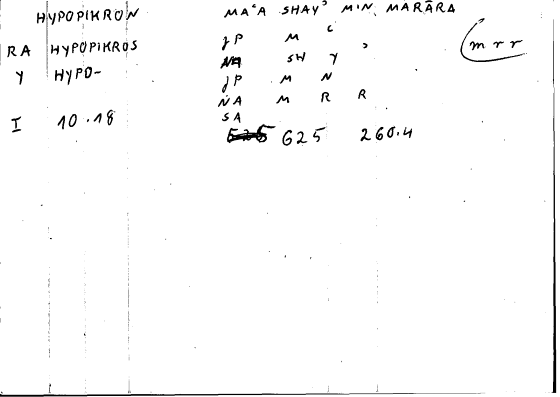 HYPOPIKRON MAʿA SHAYʾ MIN MARĀRA
RA HYPOPIKROS JP M ʿ (mrr
Y HYPO- NA SH Y ʾ
JP M N
NA M R R
I 10.18 SA
625 260.4